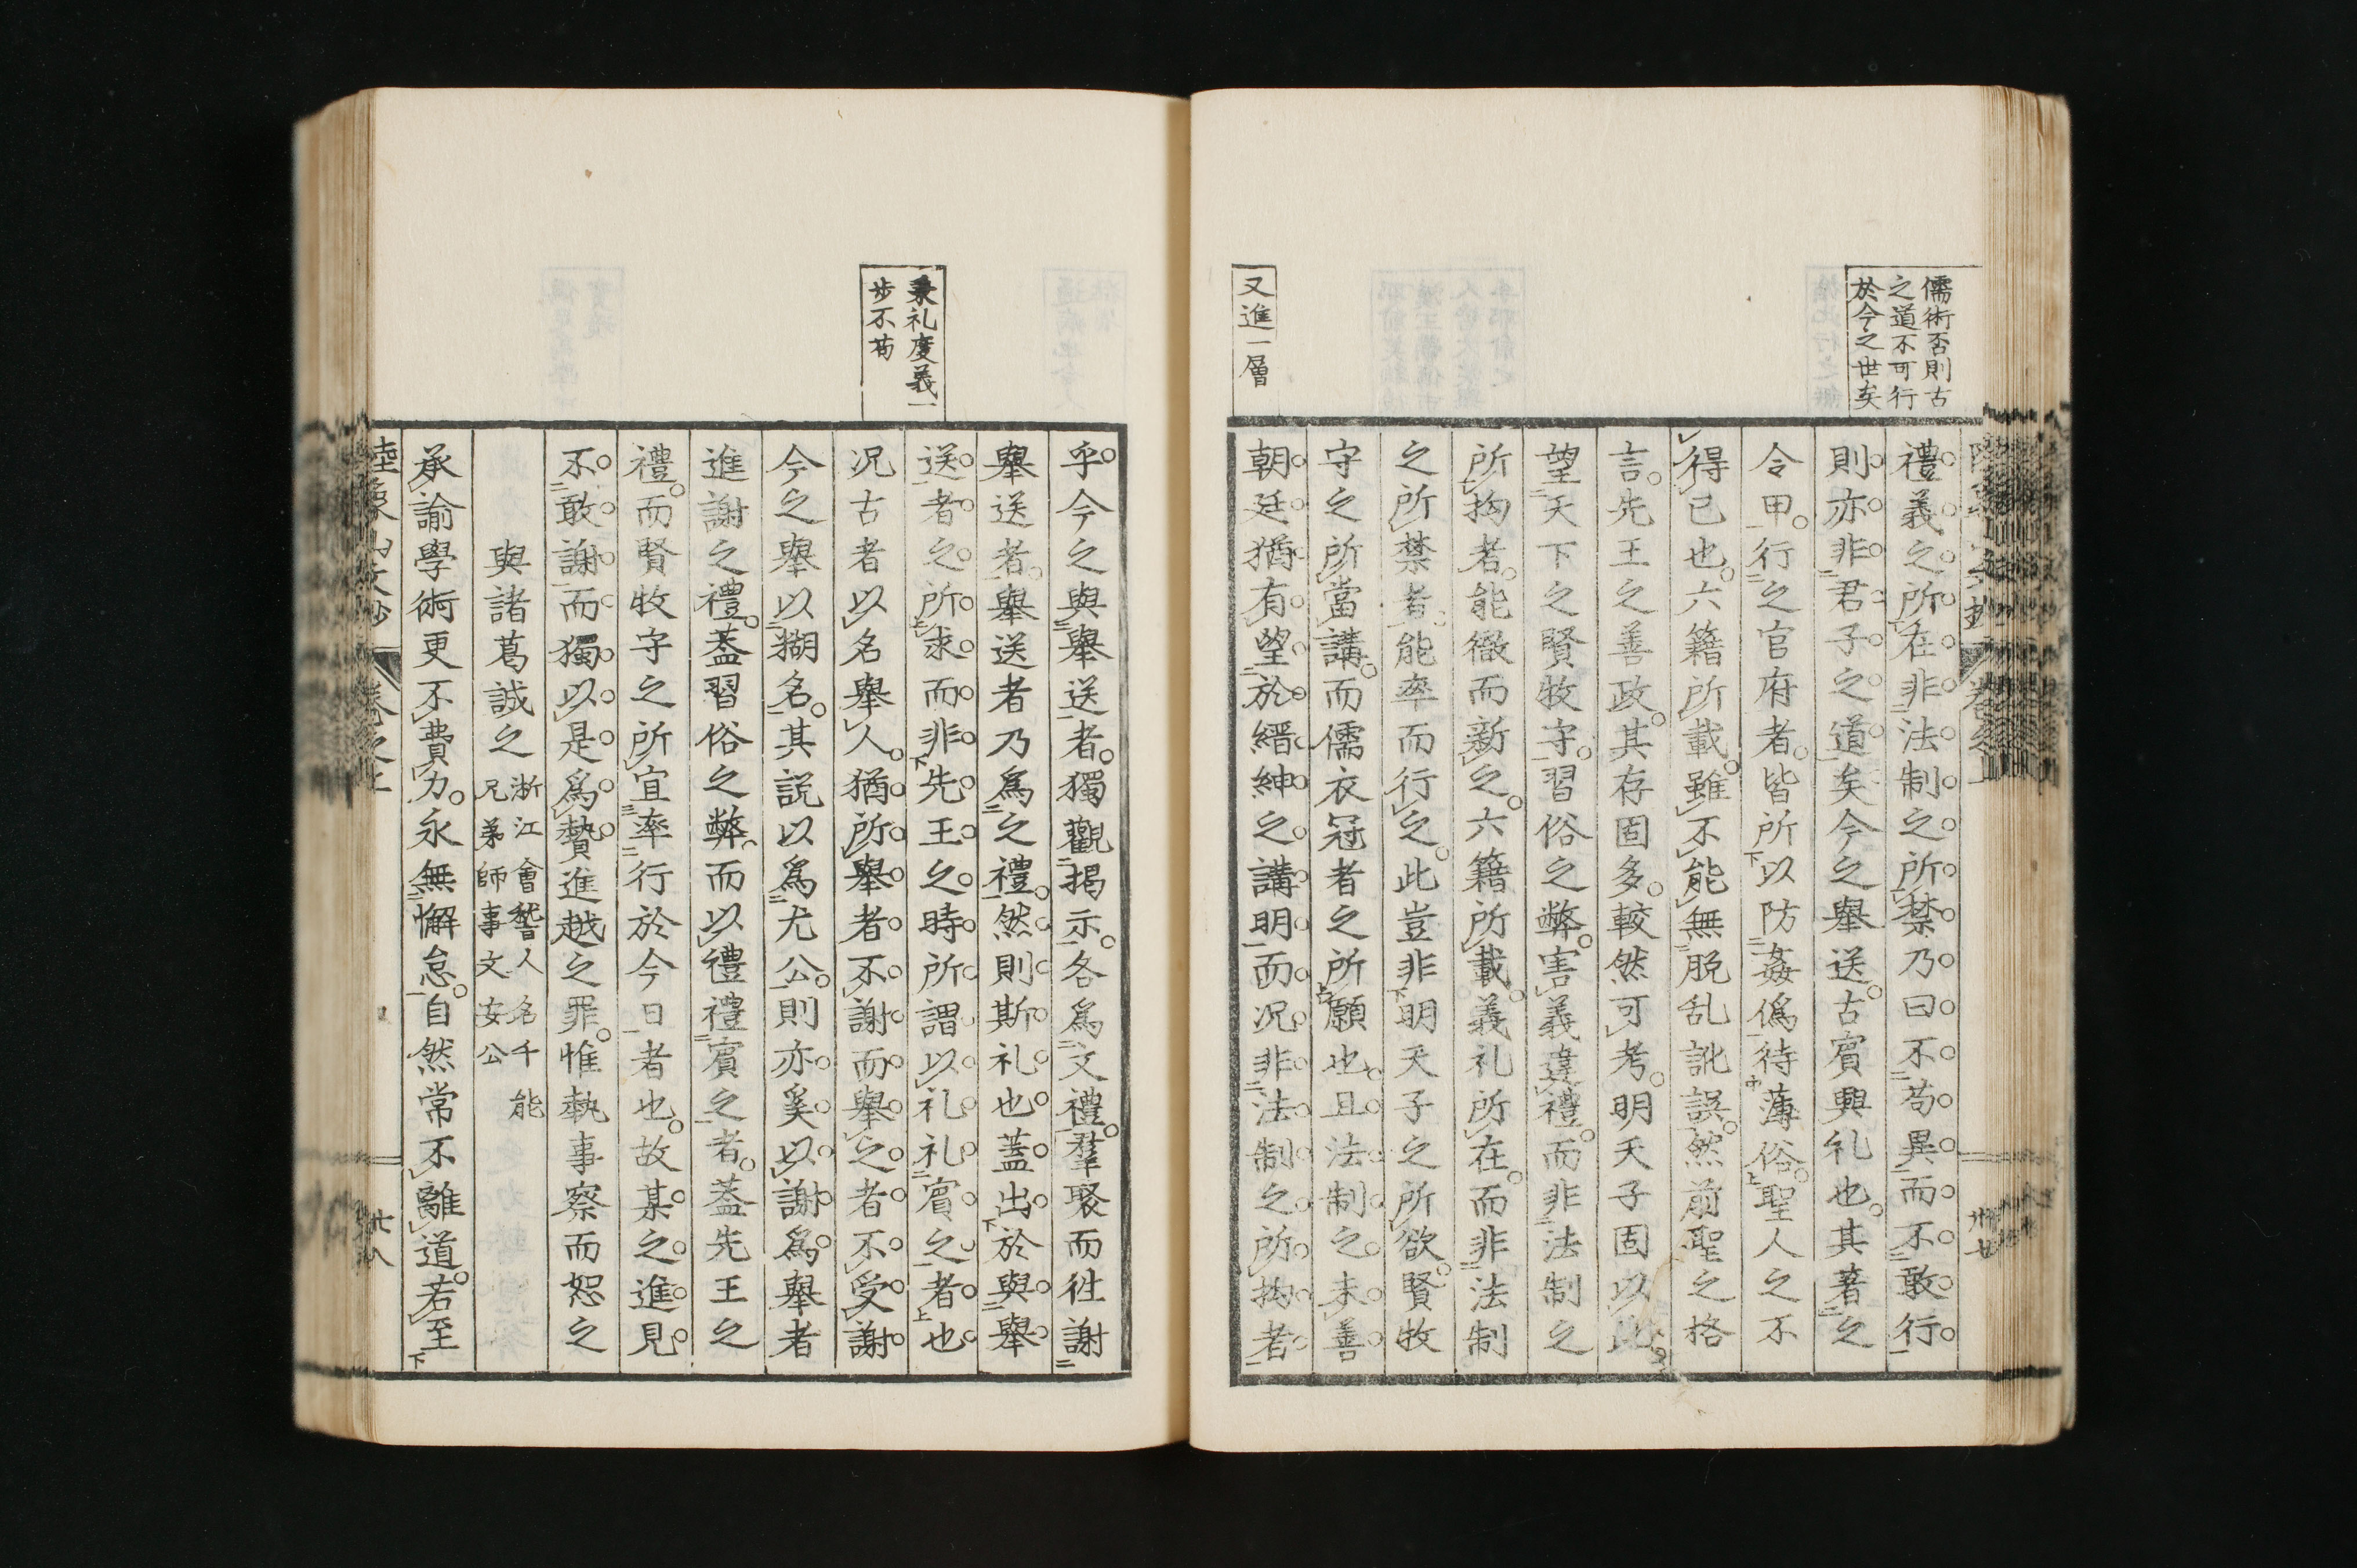 儒術否則古
之道不可行
於今之世矣
禮義之所在非法制之所禁乃曰不苟異而不敢行
則亦非君子之道矣今之舉送古賓興礼也其著之
令甲行之官府者皆所以防姦僞待薄俗聖人之不
得已也六籍所載雖不能無脱乱訛誤然前聖之格
言先王之善政其存固多較然可考明天子固以此
望天下之賢牧守習俗之弊害義違禮而非法制之
所拘者能徹而新之六籍所載義礼所在而非法制
之所禁者能率而行之此豈非明天子之所欲賢牧
守之所當講而儒衣冠者之所願也且法制之未善
又進一層
朝廷猶有望於縉紳之講明而况非法制之所拘者
乎今之與舉送者獨觀揭示各爲文禮羣聚而徃謝
舉送者舉送者乃爲之禮然則斯礼也蓋出於與舉
秉礼度義一
步不苟
送者之所求而非先王之時所謂以礼礼賓之者也
况古者以名舉人猶所舉者不謝而舉之者不受謝
今之舉以糊名其説以爲尤公則亦奚以謝爲舉者
進謝之禮蓋習俗之弊而以禮禮賓之者蓋先王之
禮而賢牧守之所宜率行於今日者也故某之進見
不敢謝而獨以是爲贄進越之罪惟執事察而恕之
與諸葛誠之
浙江會稽人名千能
兄弟師事文安公
承諭學術更不費力永無懈怠自然常不離道若至
陸象山文抄
卷之上
廿八